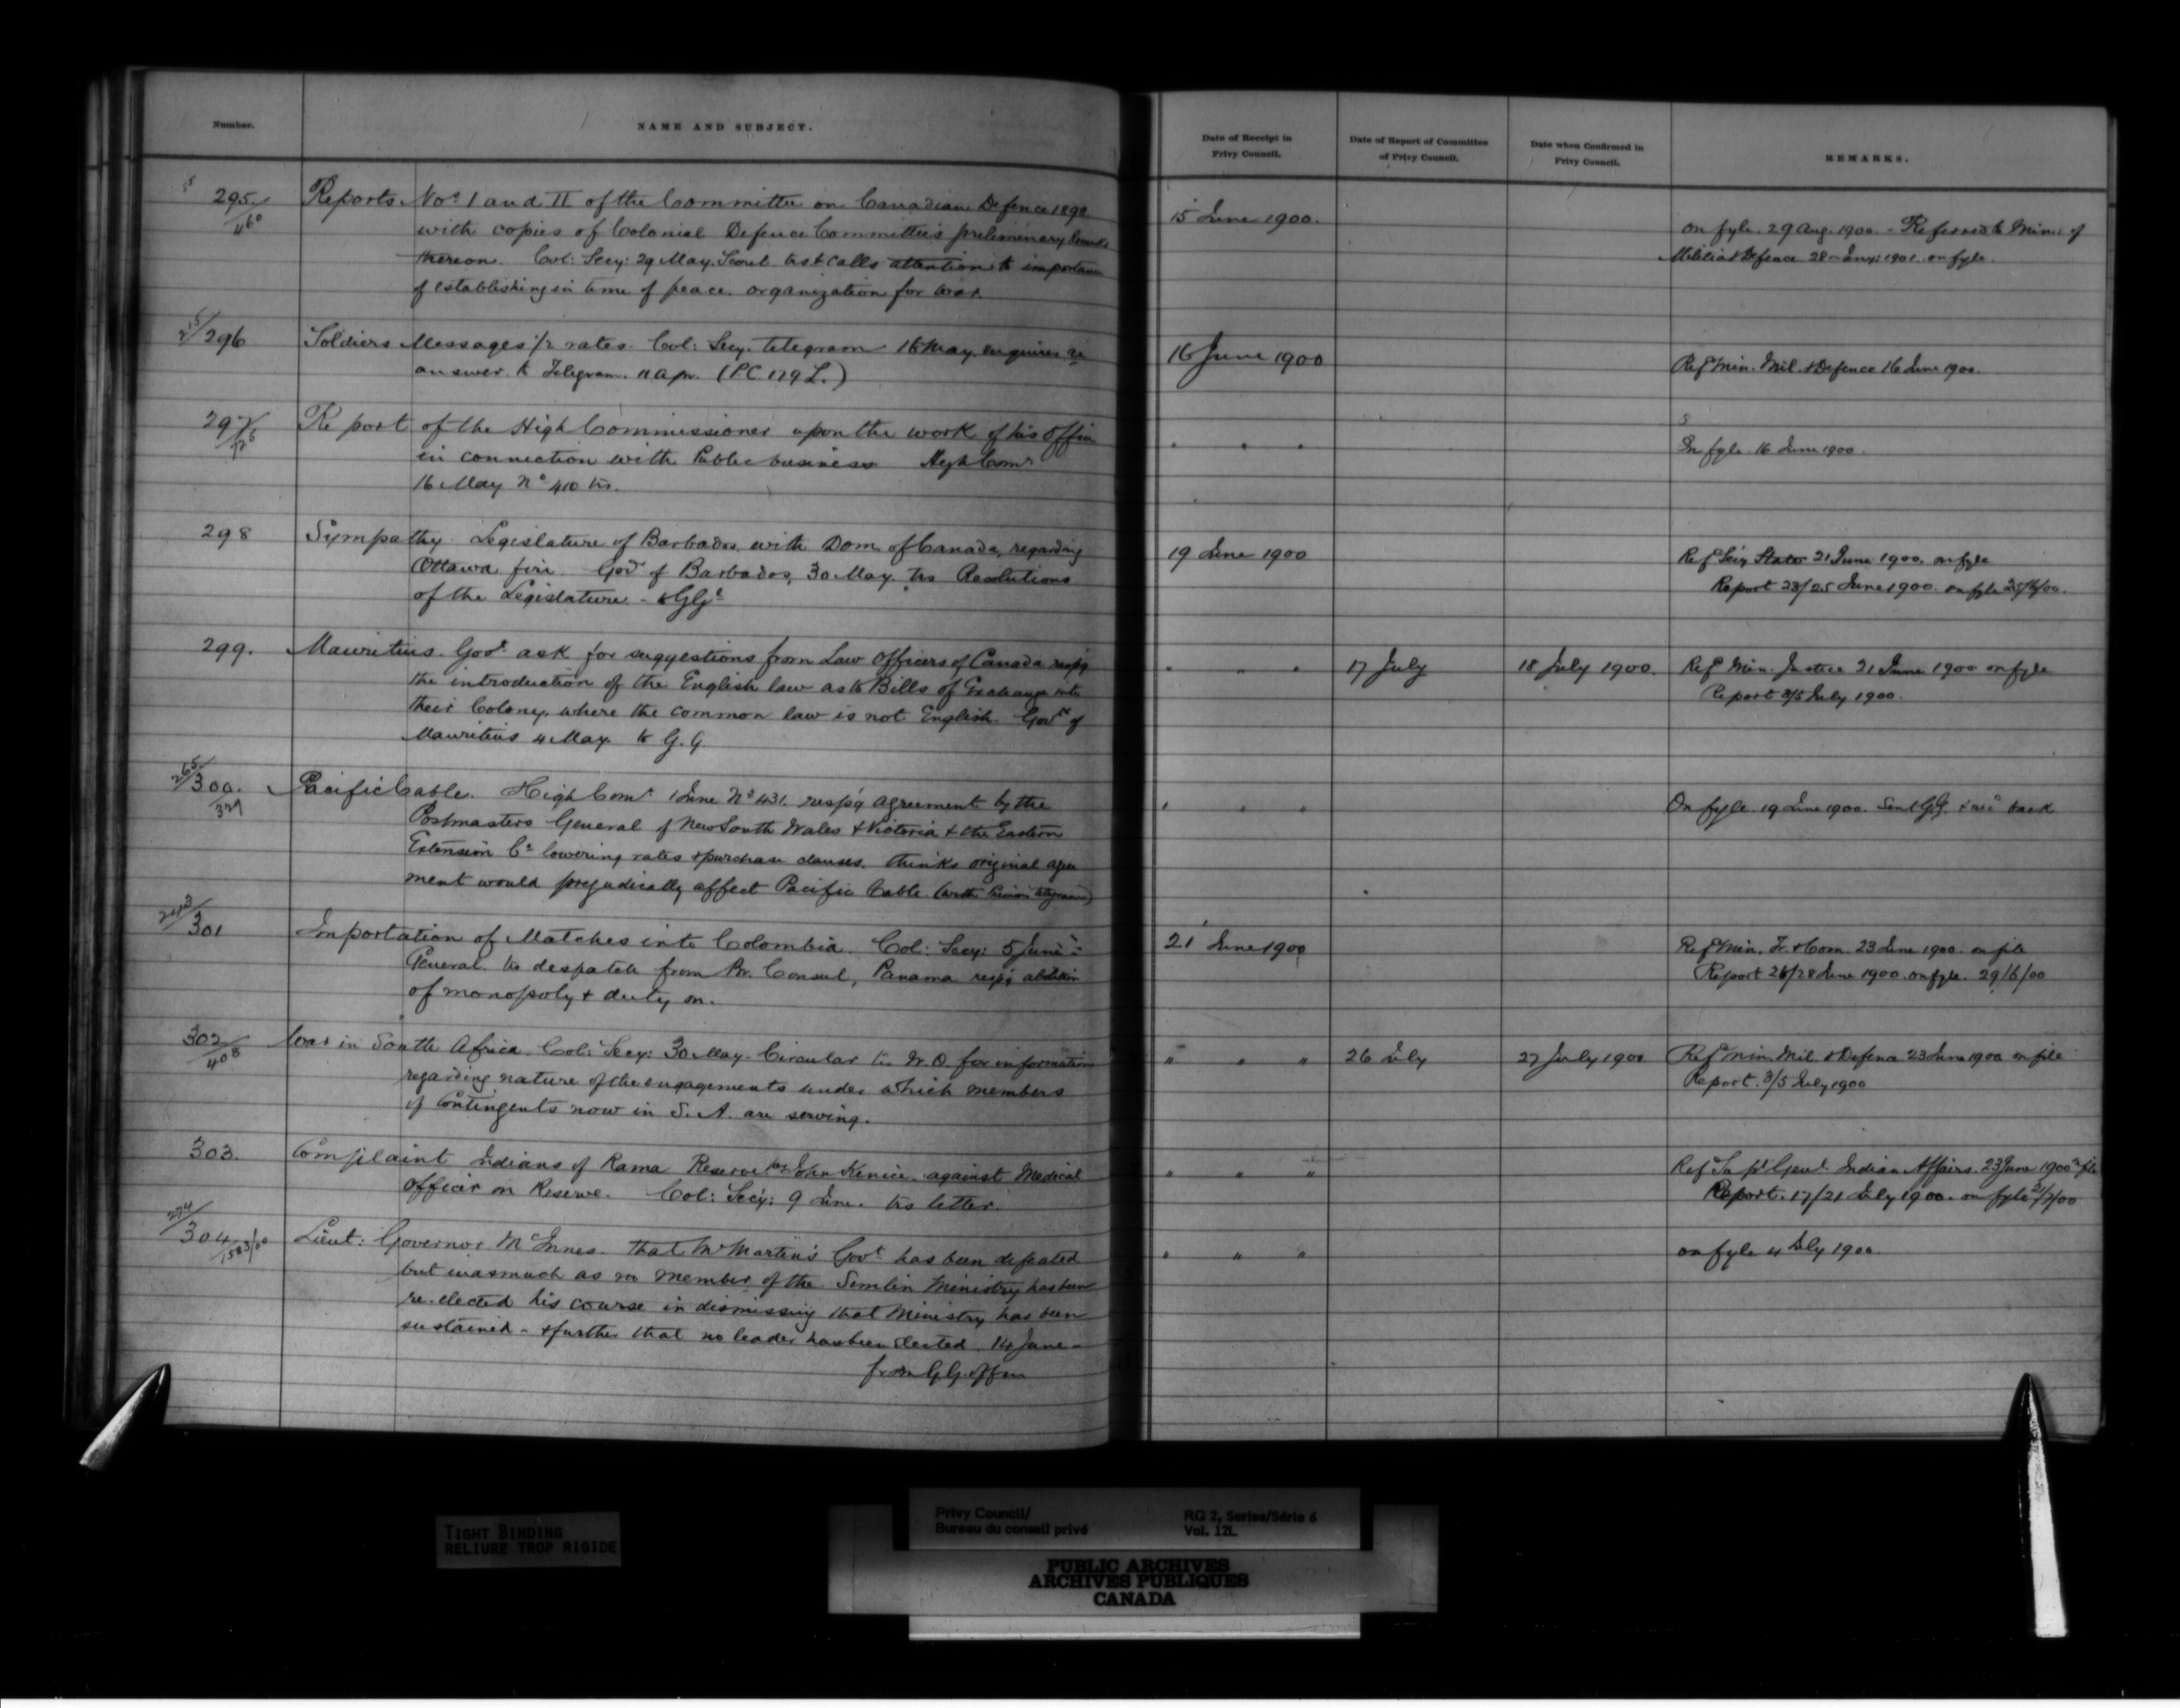 Number.
NAME AND SUBJECT.
Date of Receipt in
Privy Council.
Date of Report of Committee
of Privy Council.
Date when Confirmed in
Privy Council.
REMARKS.
295
460
Reports Nos. I and II of the Committee on Canadian Defence 1898
with copies of Colonial Defence Committee's preliminary Remarks
thereon. Col: Secy: 29 May. Secret trs & calls attention to importance
of establishing in time of peace. organization for war.
15 June 1900.
on fyle. 29 Aug. 1900. - Referred to Min: of
Militia & Defence 28 1901. on fyle.
215/296
Soldiers Messages 1/2 rates. Col: Secy. telegram 16 May enquires re
answer to Telegram. 11 Apr. (P.C. 179 L.)
16 June 1900
Refd Min. Mil. & Defence 16 June 1900.
297
Report of the High Commissioner upon the work of his office
in connection with Public business High Comr
16 May No 410 trs.
" " "
On fyle. 16 June 1900.
298
Sympathy. Legislature of Barbados. with Dom. of Canada, regarding
Ottawa fire. Govr of Barbados, 30 May. trs Resolutions
of the Legislature - to GGl
19 June 1900
Refd Secy State 21 June 1900. on fyle
Report 23/25 June 1900. on fyle 25/6/00.
299.
Mauritius. Govt. ask for suggestions from Law Officers of Canada respg
the introduction of the English law as to Bills of Exchange into
their Colony, where the common law is not English. Govr of
Mauritius 4 May to G.G.
" " "
17 July
18 July 1900.
Refd Min. Justice 21 June 1900 on fyle
Report 3/5 July 1900.
265/300.
329
Pacific Cable. High Comr 1 June No 431. respg agreement by the
Postmasters General of New South Wales & Victoria & the Eastern
Extension Co lowering rates & purchase clauses. thinks original agree
ment would prejudicially affect Pacific Cable. (with telegrams)
" " "
On fyle. 19 June 1900. Sent G.G. & recd back
243/301
Importation of Matches into Colombia. Col: Secy: 5 June -
General. trs despatch from Br. Consul, Panama respg abolition
of monopoly & duty on.
21 June 1900
Refd Min. Tr. & Com. 23 June 1900. on file
Report 26/28 June 1900. on fyle. 29/6/00
302
408
War in South Africa. Col: Secy: 30 May. Circular trs W.O. for information
regarding nature of the engagements under which members
of Contingents now in S.A. are serving.
" " "
26 July
27 July 1900
Refd Min. Mil. & Defence 23 June 1900 on file
Report. 3/5 July 1900
303.
Complaint Indians of Rama Reserve per John Kenice. against Medical
officer on Reserve. Col: Secy: 9 June. trs letter.
" " "
Refd Supt Genl Indian Affairs. 23 June 1900 on file
Report. 17/21 July 1900. on fyle 21/7/00
274/304
583/00
Lieut: Governor McInnes. that Mr Martin's Govt has been defeated
but inasmuch as no member of the Semlin Ministry has been
re-elected his course in dismissing that Ministry has been
sustained - & further that no leader has been elected. 14 June -
from G.G. office
" " "
on fyle 4 July 1900.
TIGHT BINDING
RELIURE TROP RIGIDE
Privy Council/
Bureau du conseil privé
RG 2, Series/Série 6
Vol. 121.
PUBLIC ARCHIVES
ARCHIVES PUBLIQUES
CANADA